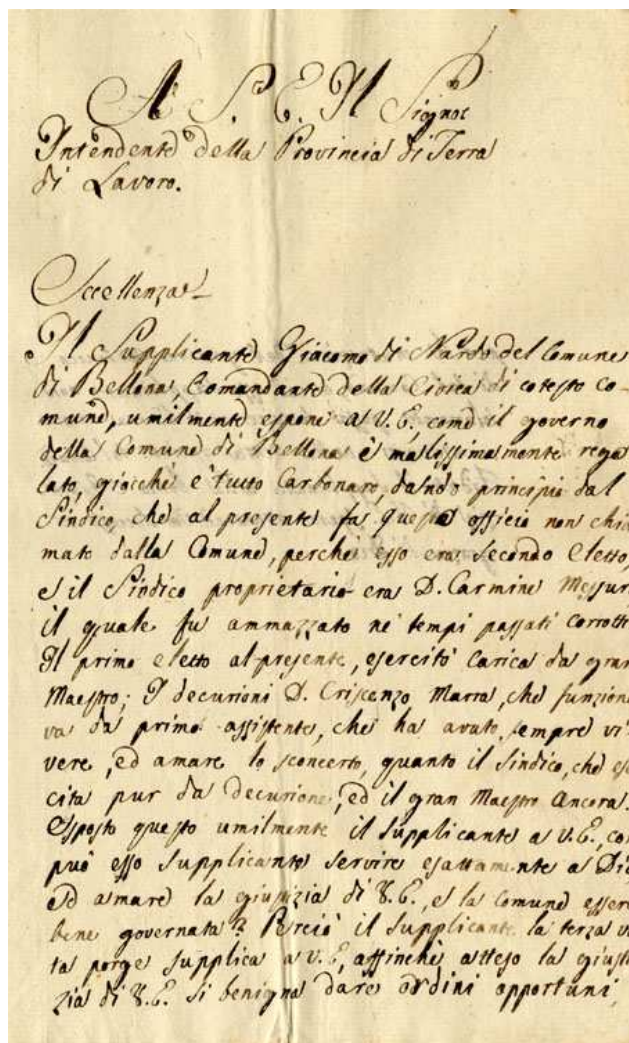 A S. E. Il Signor
Intendente della Provincia di Terra
di Lavoro.
Eccellenza
Il Supplicante Giacomo di Nardo del Comune
di Bellona, Comandante della Civica di cotesto Co-
mune, umilmente espone a V. E., come il governo
della Comune di Bellona è malissimamente rego
lato, giacchè è tutto Carbonaro, dando principio dal
Sindico, che al presente fa questo officio non chia
mato dalla Comune, perchè esso era secondo eletto,
e il Sindico proprietario era D. Carmine
il quale fu ammazzato ne' tempi passati corrotti
Il primo eletto al presente, esercitò carica da gran
Maestro; I decurioni D. Criscenzo Marra, che funziona
va da primo assistente, che ha avuto sempre vi
vere, ed amare lo sconcerto, quanto il Sindico, che eser
cita pur da decurione, ed il gran Maestro ancora.
Esposto questo umilmente il supplicante a V. E., co
può esso supplicante servire esattamente a Dio
ed amare la giustizia di V. E., e la Comune essere
bene governata? Perciò il supplicante la terza vo
ta porge supplica a V. E., affinchè atteso la giusti
zia di V. E. si benigna dare ordini opportuni